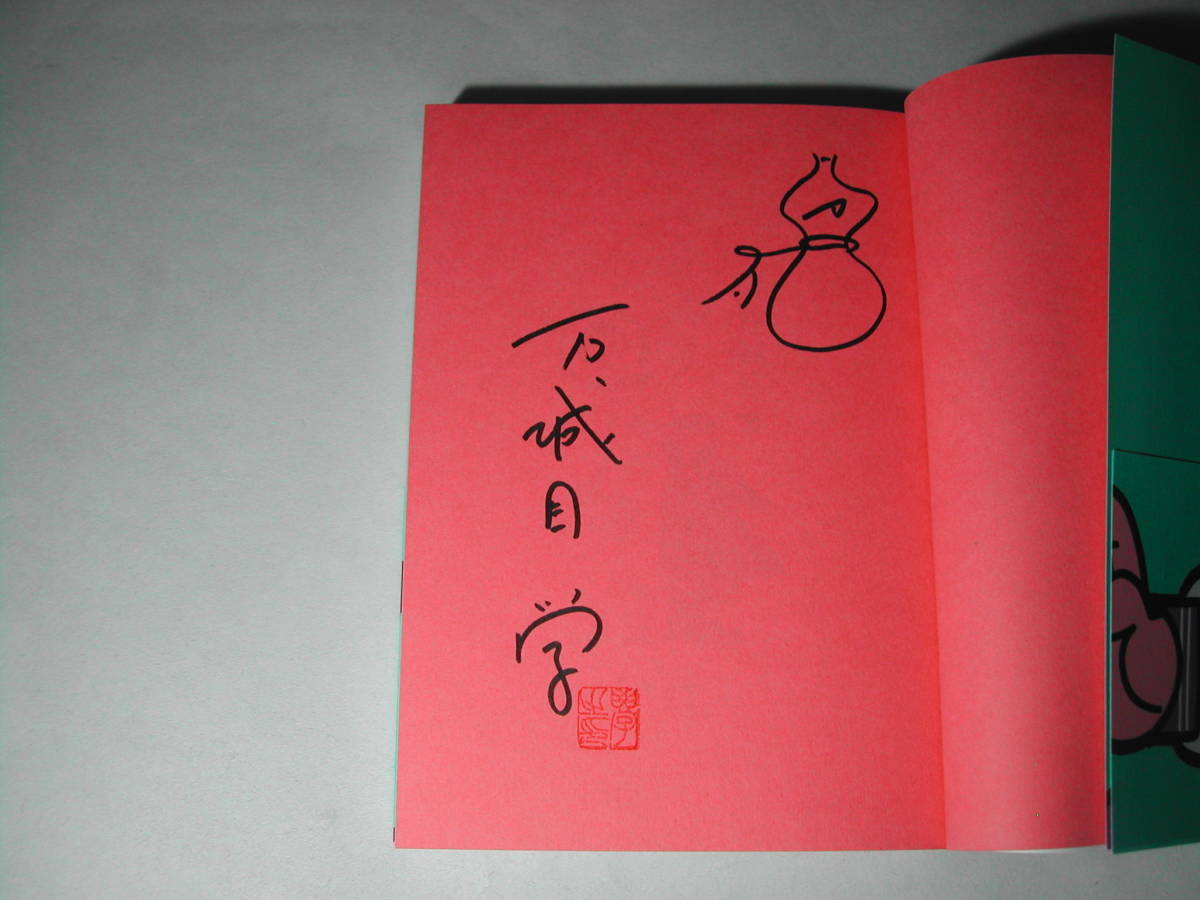 万城目学